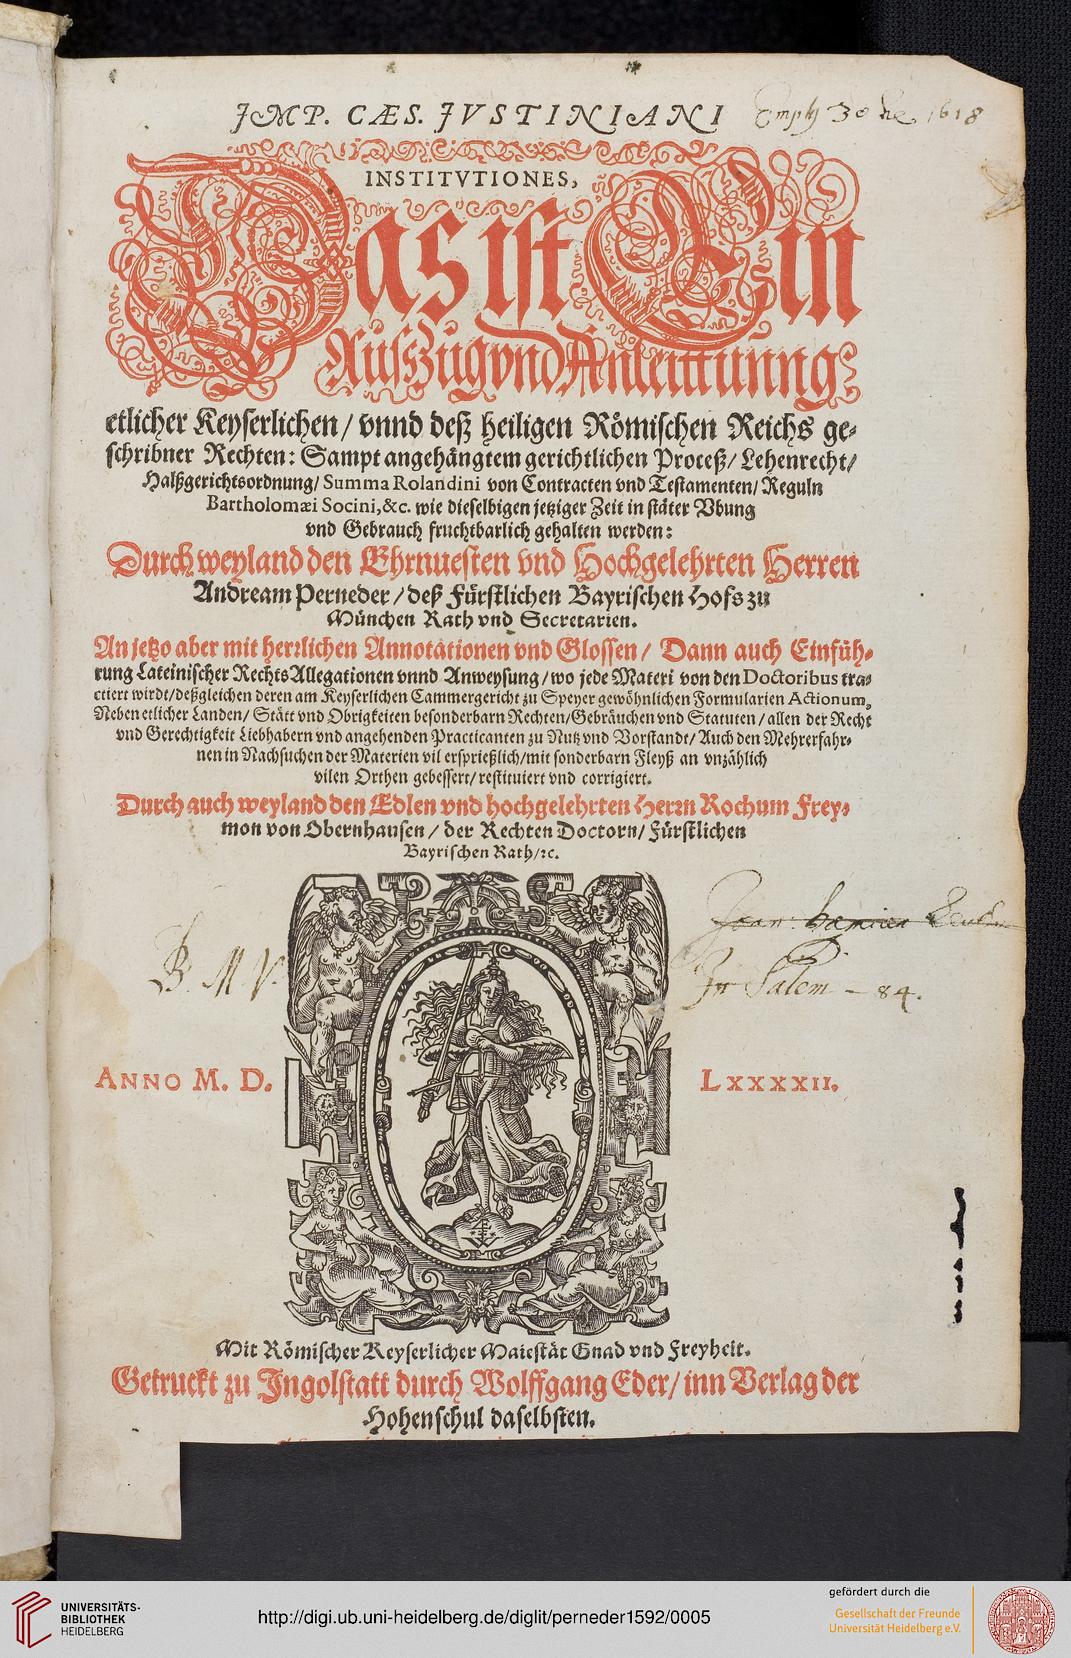 IMP. CÆS. IVSTINIANI
1618
INSTITVTIONES,
Das ist Ein
Auszug vnd Anleittunng
etlicher Keyserlichen / vnnd deß heiligen Römischen Reichs ge-
schribner Rechten: Sampt angehängtem gerichtlichen Proceß / Lehenrecht /
Halßgerichtsordnung / Summa Rolandini von Contracten vnd Testamenten / Reguln
Bartholomæi Socini, &c. wie dieselbigen jetziger Zeit in stäter Vbung
vnd Gebrauch fruchtbarlich gehalten werden:
Durch weyland den Ehrnuesten vnd Hochgelehrten Herren
Andream Perneder / deß Fürstlichen Bayrischen Hofs zu
München Rath vnd Secretarien.
An jetzo aber mit herrlichen Annotationen vnd Glossen / Dann auch Einfüh-
rung Lateinischer Rechts Allegationen vnnd Anweysung / wo jede Materi von den Doctoribus tra-
ctiert wirdt / deßgleichen deren am Keyserlichen Cammergericht zu Speyer gewöhnlichen Formularien Actionum,
Neben etlicher Landen / Stätt vnd Obrigkeiten besonderbarn Rechten / Gebräuchen vnd Statuten / allen der Recht
vnd Gerechtigkeit Liebhabern vnd angehenden Practicanten zu Nutz vnd Vorstandt / Auch den Mehrerfahr-
nen in Nachsuchen der Materien vil ersprießlich / mit sonderbarn Fleyß an vnzählich
vilen Orthen gebessert / restituiert vnd corrigiert.
Durch auch weyland den Edlen vnd hochgelehrten Herrn Rochum Frey-
mon von Obernhausen / der Rechten Doctorn / Fürstlichen
Bayrischen Rath / ꝛc.
B. M. V.
In Salem - 84.
ANNO M. D. LXXXXII.
Mit Römischer Keyserlicher Maiestät Gnad vnd Freyheit.
Getruckt zu Ingolstatt durch Wolffgang Eder / inn Verlag der
Hohenschul daselbsten.
UNIVERSITÄTS-
BIBLIOTHEK
HEIDELBERG
http://digi.ub.uni-heidelberg.de/diglit/perneder1592/0005
gefördert durch die
Gesellschaft der Freunde
Universität Heidelberg e.V.